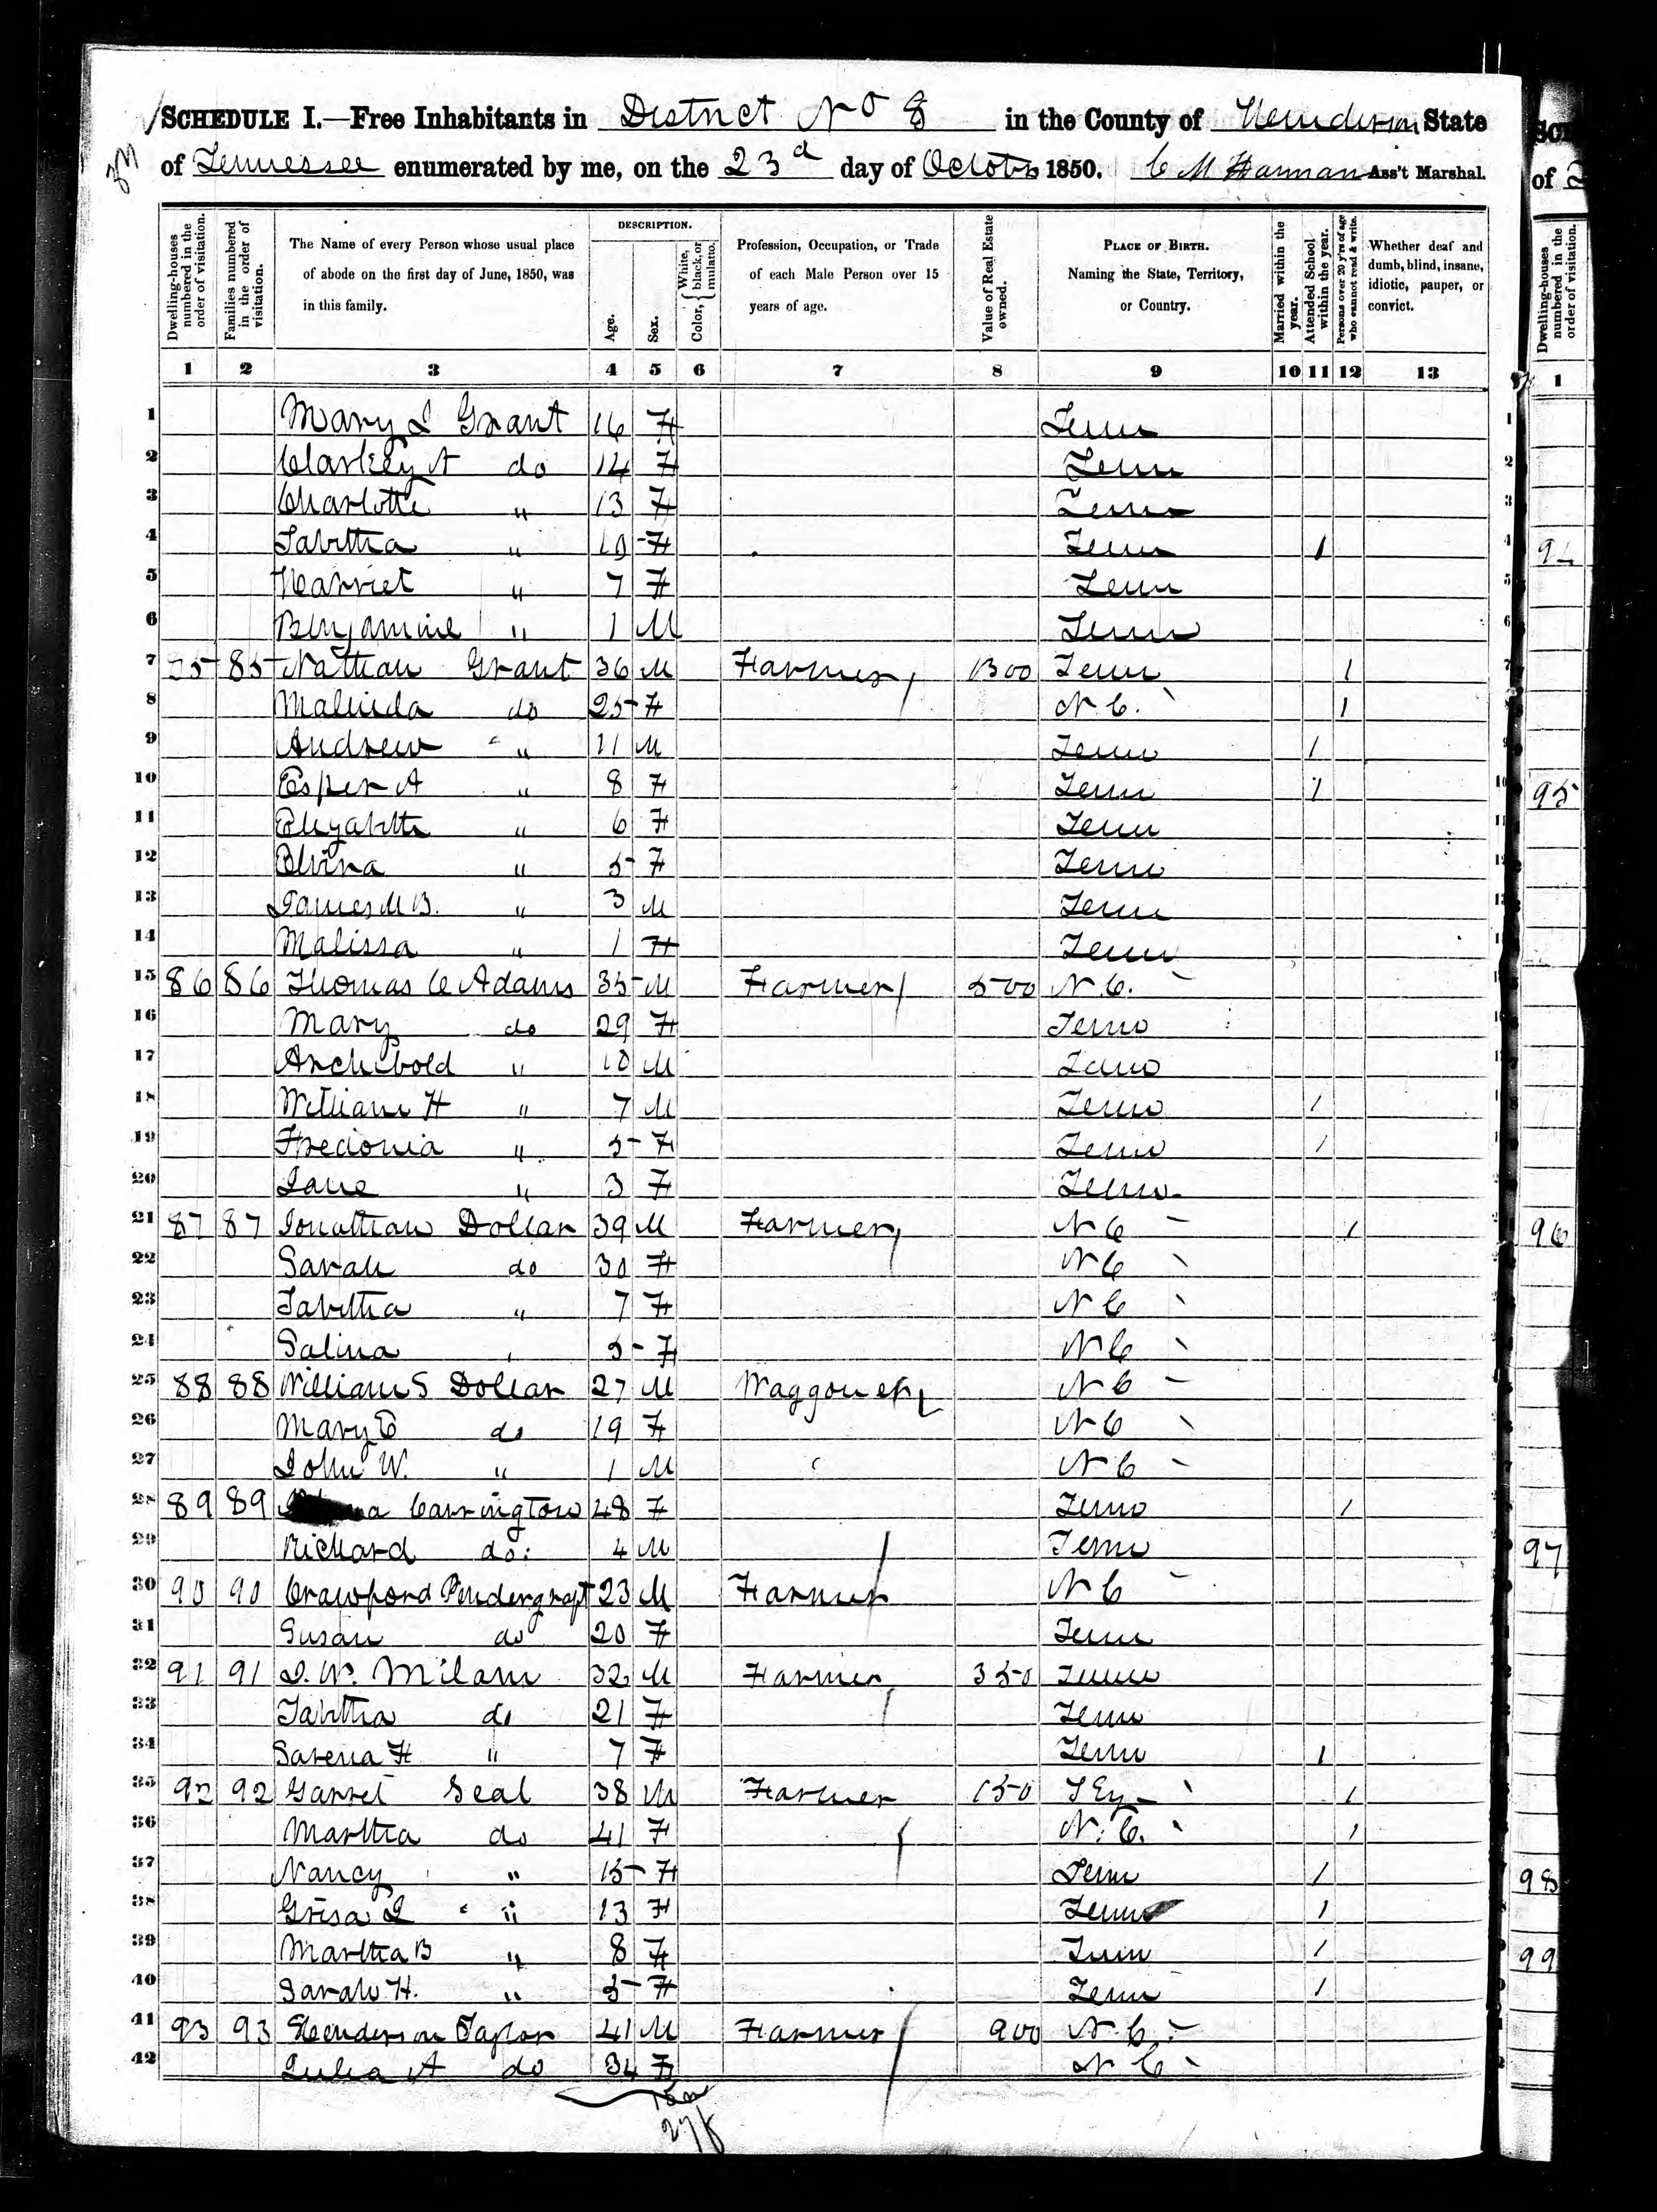 SCHEDULE I.—Free Inhabitants in District No 8 in the County of Henderson State
of Tennessee enumerated by me, on the 23d day of Octobr 1850. C M Harman Ass't Marshal.
Dwelling-houses numbered in the order of visitation.
Families numbered in the order of visitation.
The Name of every Person whose usual place of abode on the first day of June, 1850, was in this family.
DESCRIPTION.
Age.
Sex.
Color, { White, black, or mulatto.
Profession, Occupation, or Trade of each Male Person over 15 years of age.
Value of Real Estate owned.
PLACE OF BIRTH. Naming the State, Territory, or Country.
Married within the year.
Attended School within the year.
Persons over 20 y'rs of age who cannot read & write.
Whether deaf and dumb, blind, insane, idiotic, pauper, or convict.
1 2 3 4 5 6 7 8 9 10 11 12 13
1 Mary J Grant 16 F Tenn
2 Clarkey A do 14 F Tenn
3 Charlotte " 13 F Tenn
4 Tabitha " 10 F Tenn 1
5 Harriet " 7 F Tenn
6 Benjamine " 1 M Tenn
7 85 Nathan Grant 36 M Farmer 1300 Tenn 1
8 Malinda do 25 F N C. 1
9 Andrew " 11 M Tenn 1
10 Esper A " 8 F Tenn 1
11 Elizabeth " 6 F Tenn
12 Elvina " 5 F Tenn
13 James M B. " 3 M Tenn
14 Malissa " 1 F Tenn
15 86 86 Thomas C Adams 35 M Farmer 500 N C.
16 Mary do 29 F Tenn
17 Archibold " 10 M Tenn
18 William H " 7 M Tenn 1
19 Fredonia " 5 F Tenn 1
20 Jane " 3 F Tenn
21 87 87 Jonathan Dollar 39 M Farmer N C 1
22 Sarah do 30 F N C
23 Tabitha " 7 F N C
24 Salina 5 F N C
25 88 88 William S Dollar 27 M Waggoner N C
26 Mary E do 19 F N C
27 John W. " 1 M N C
28 89 89 Carrington 48 F Tenn 1
29 Richard do 4 M Tenn
30 90 90 Crawford Pendergraft 23 M Farmer N C
31 Susan do 20 F Tenn
32 91 91 J. W. Milam 32 M Farmer 350 Tenn
33 Tabitha do 21 F Tenn
34 Sarena H " 7 F Tenn 1
35 92 92 Garret Seal 38 M Farmer 150 1
36 Martha do 41 F N. C. 1
37 Nancy " 15 F Tenn 1
38 " 13 F Tenn 1
39 Martha B " 8 F Tenn 1
40 Sarah H. " 5 F Tenn 1
41 93 93 Henderson Taylor 41 M Farmer 900 N C.
42 Julia A do 34 F N C
of
Dwelling-houses numbered in the order of visitation.
1
94
95
96
97
98
99